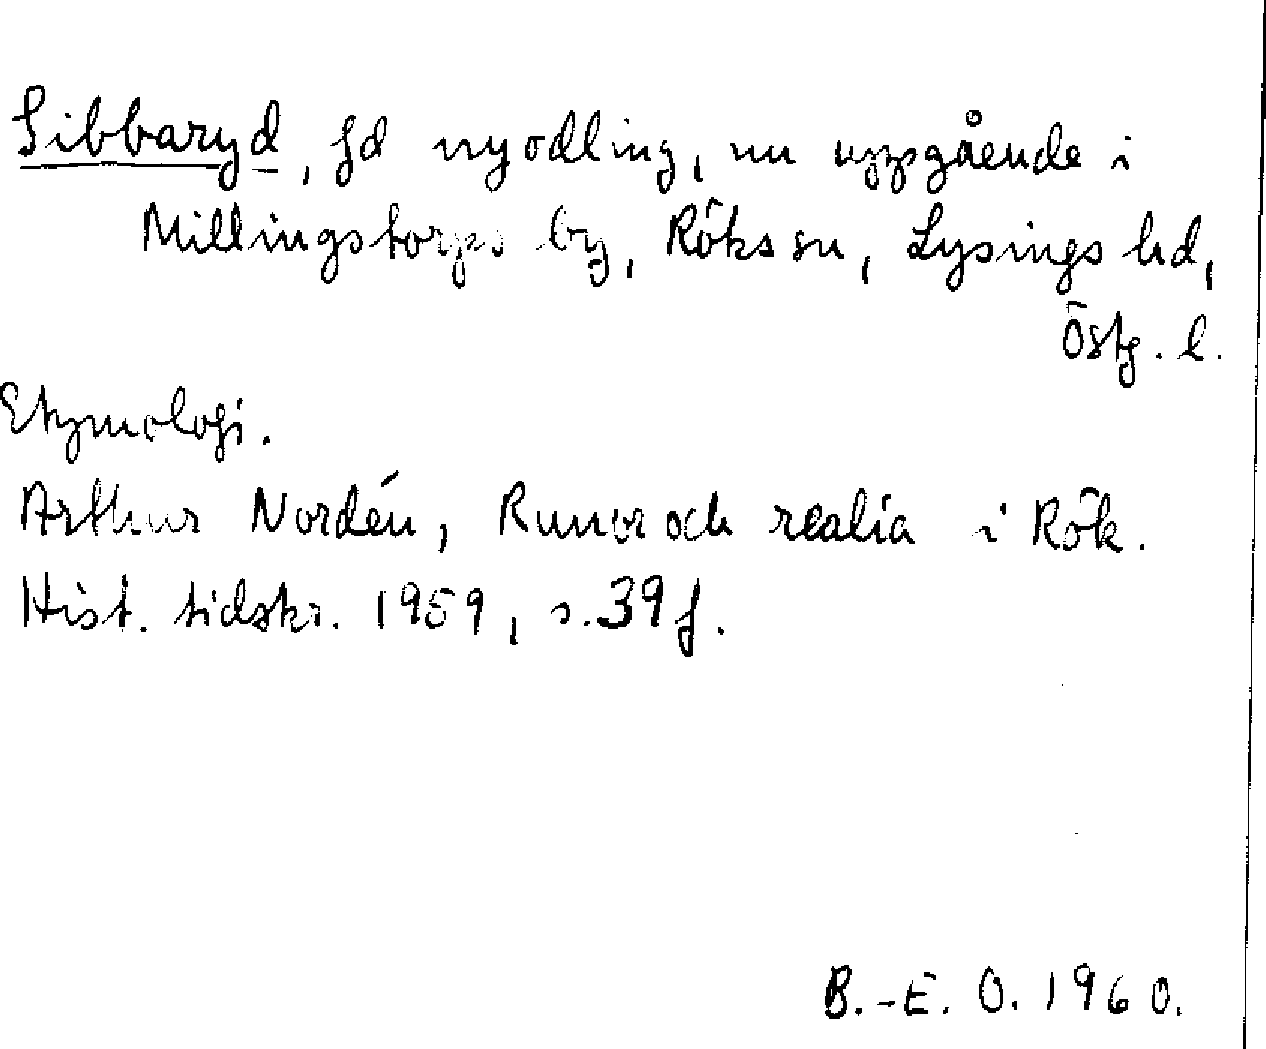 Sibbaryd, fd nyodling, nu uppgående i
Millingstorps by, Röks sn, Lysings hd,
Östg. l.
Etymologi.
Arthur Nordén, Runor och realia i Rök.
Hist. tidskr. 1959, s. 39 f.
B.-E. O. 1960.